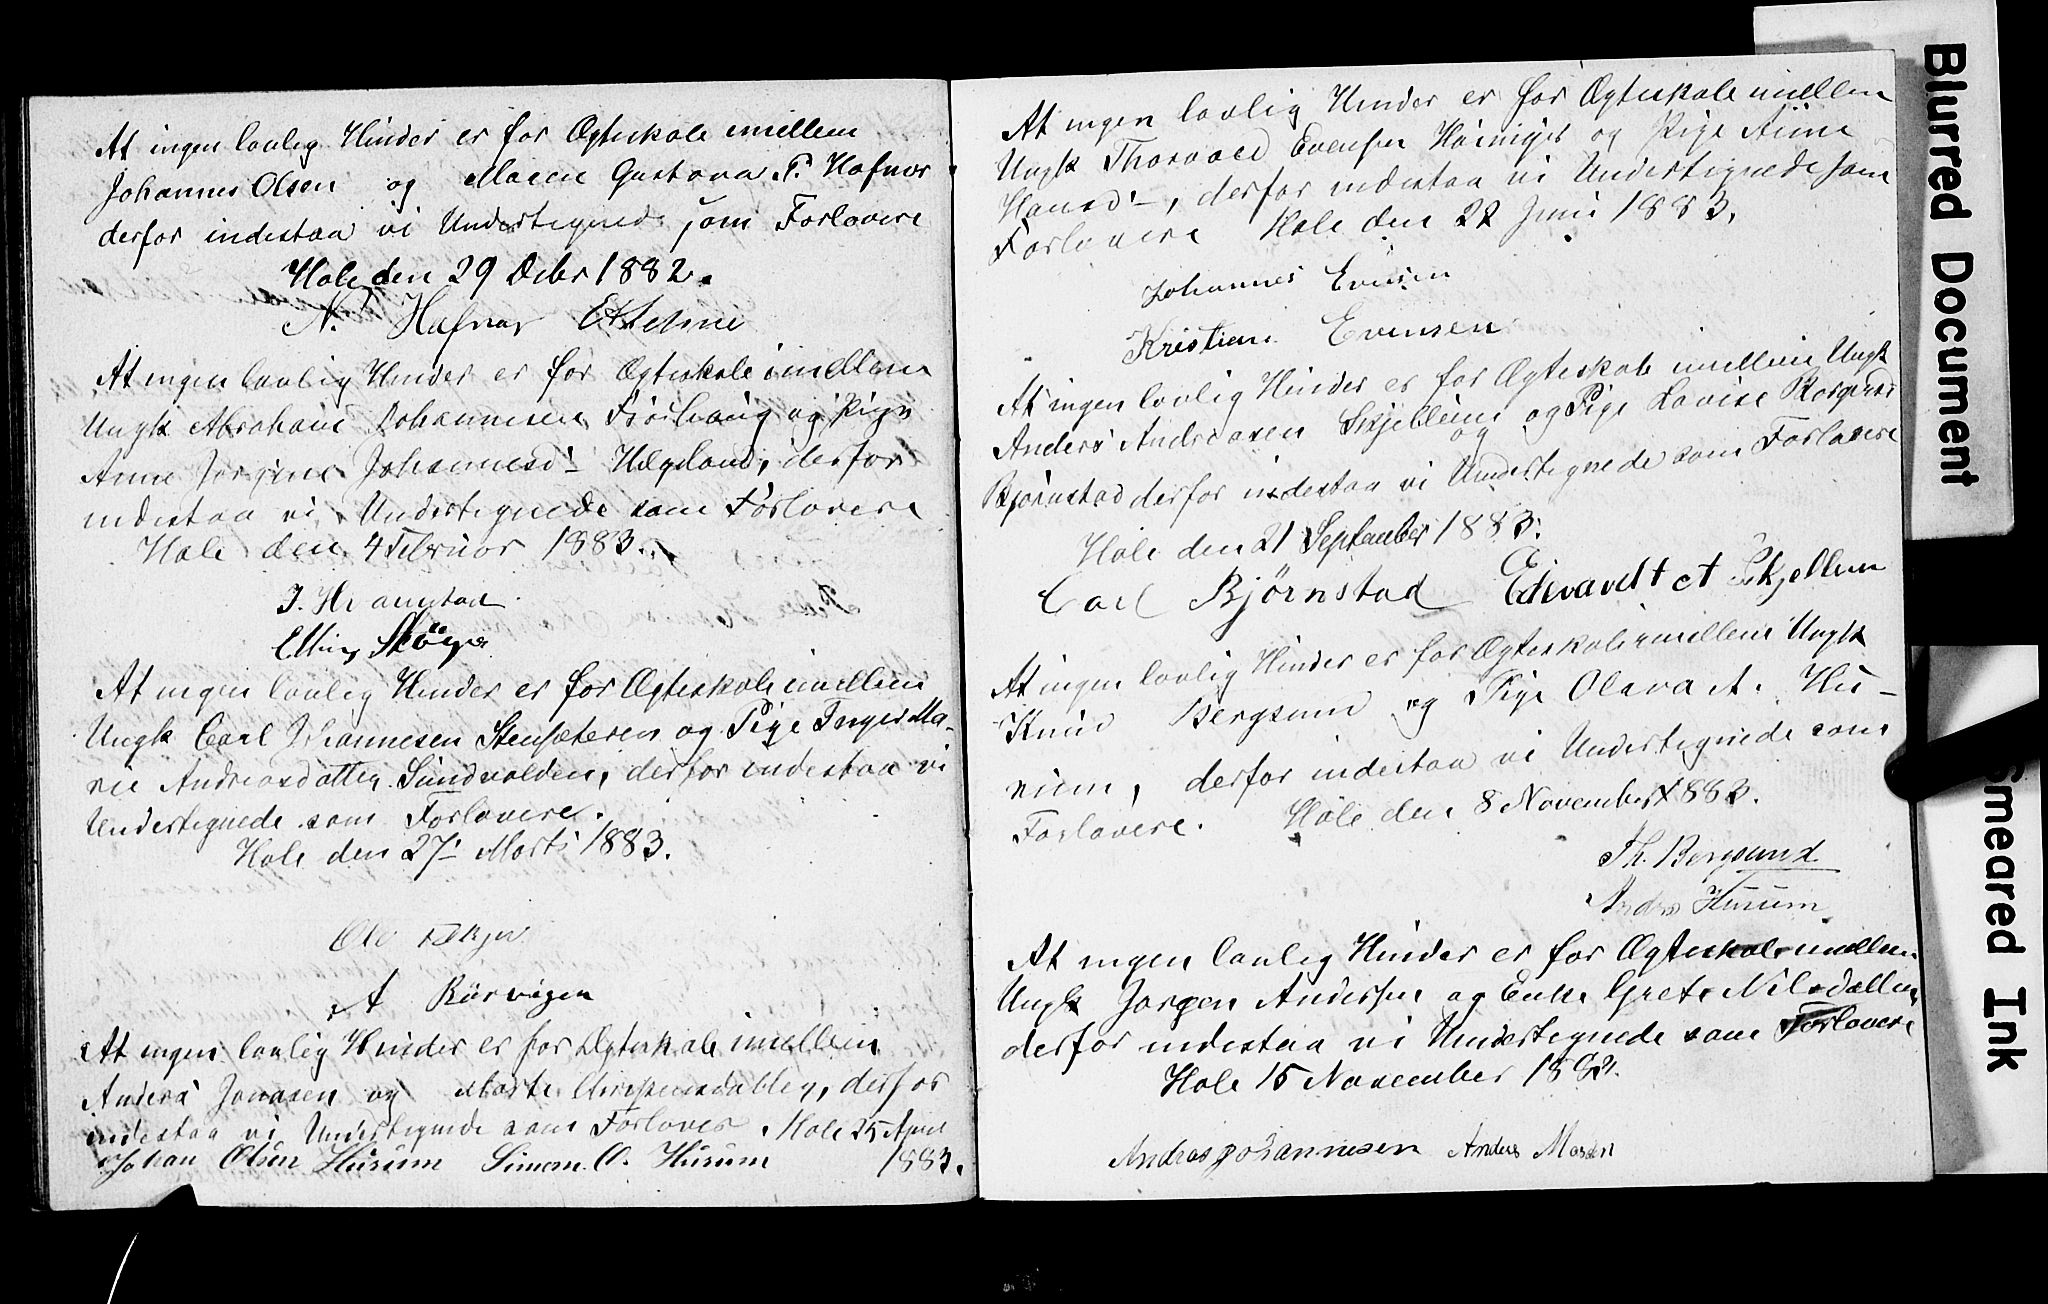 At ingen lovlig Hinder er for Ægteskab imellem
Johannes Olsen og Maren Gustava P. Hafnor
derfor indestaa vi Undertegnede som Forlovere
Hole den 29 Debr 1882.
N. Hafnor
At ingen lovlig Hinder er for Ægteskab imellem
Ungk Abraham Johannesen Fjorhaug og Pige
Anne Jorgine Johannesd- Hægeland, derfor
indestaa vi Undertegnede som Forlovere
Hole den 4 Februar 1883.
Elling
At ingen lovlig Hinder er for Ægteskab imellem
Ungk Carl Johannesen Stensæteren og Pige Inger Ma-
rie Andreasdatter Sundvolden, derfor indestaa vi
Undertegnede som Forlovere.
Hole den 27- Marts 1883.
Ole
A Rørvigen
At ingen lovlig Hinder er for Ægteskab imellem
Anders Jonasen og Marte derfor
indestaa vi Undertegnede som Forlover Hole 25 April
Johan Olsen Husum Simon O. Husum 1883.
At ingen lovlig Hinder er for Ægteskab imellem
Ungk Thorvald Evensen og Pige Anne
Hansd-, derfor indestaa vi Undertegnede som
Forlovere Hole den 22 Juni 1883.
Johannes Evensen
Kristian Evensen
At ingen lovlig Hinder er for Ægteskab imellem Ungk
Anders Andreasen Skjellum og Pige Lovise
og
Bjørnstad derfor indestaa vi Undertegnede som Forlovere
Hole den 21 September 1883.
Carl Bjørnstad Edevardt A Skjellum
At ingen lovlig Hinder er for Ægteskab imellem Ungk
Knud Bergsund og Pige Olava A. Hu-
sum, derfor indestaa vi Undertegnede som
Forlovere. Hole den 8 November 1883.
Th. Bergsund
Anders Husum
At ingen lovlig Hinder er for Ægteskab imellem
Ungk Jørgen Andersen og Enke Grete Nilsdatter
derfor indestaa vi Undertegnede som Forlovere
Hole 15 November 1883.
Andreas Johannesen Anders
Blurred Document
Smeared Ink